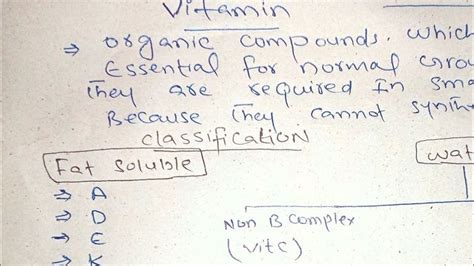 Vitamin
⇒ organic compounds. which
Essential for normal
They are required In
Because They cannot
classification
Fat soluble
⇒ A
⇒ D
⇒ E
⇒ K
Non B complex
(vit C)